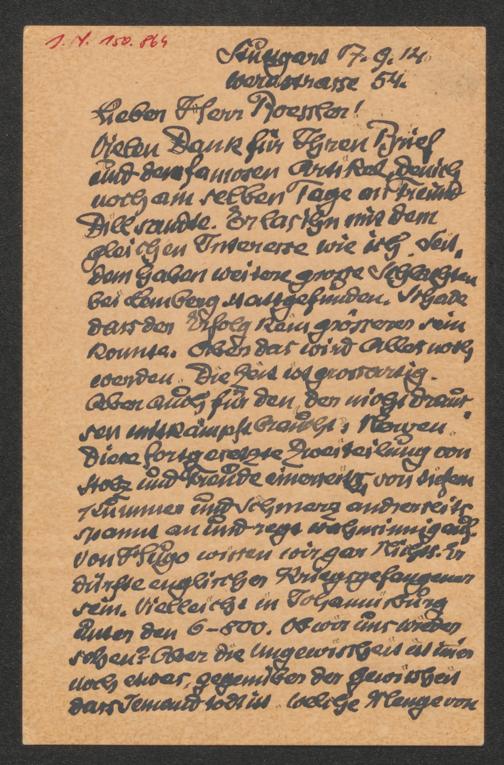 I. N. 150.864
Stuttgart 17.9.14.
Werastrasse 54.
Lieber Herr Roessler!
Vielen Dank für Ihren Brief
und den famosen Artikel, den ich
noch am selben Tage an Freund
Dill sandte. Er las ihn mit dem
gleichen Interesse wie ich. Seit-
dem haben weitere grosse Schlachten
bei Lemberg stattgefunden. Schade
dass der Erfolg kein grösserer sein
konnte. Aber das wird Alles noch
werden. Die Zeit ist grossartig.
Aber auch für den, der nicht draus-
sen mitkämpft braucht's Nerven.
Diese fortgesetzte Zweiteilung von
Stolz und Freude einerseits, von tiefem
Kummer und Schmerz andrerseits
spannt an und regt wahnsinnig auf.
Von Hugo wissen wir gar Nichts. Er
dürfte englischer Kriegsgefangener
sein. Vielleicht in Johannisburg
unter den 6-800. Ob wir uns wieder
sehen? Aber die Ungewissheit ist immer
noch etwas, gegenüber der Gewissheit
dass Jemand todt ist. Welche Menge von